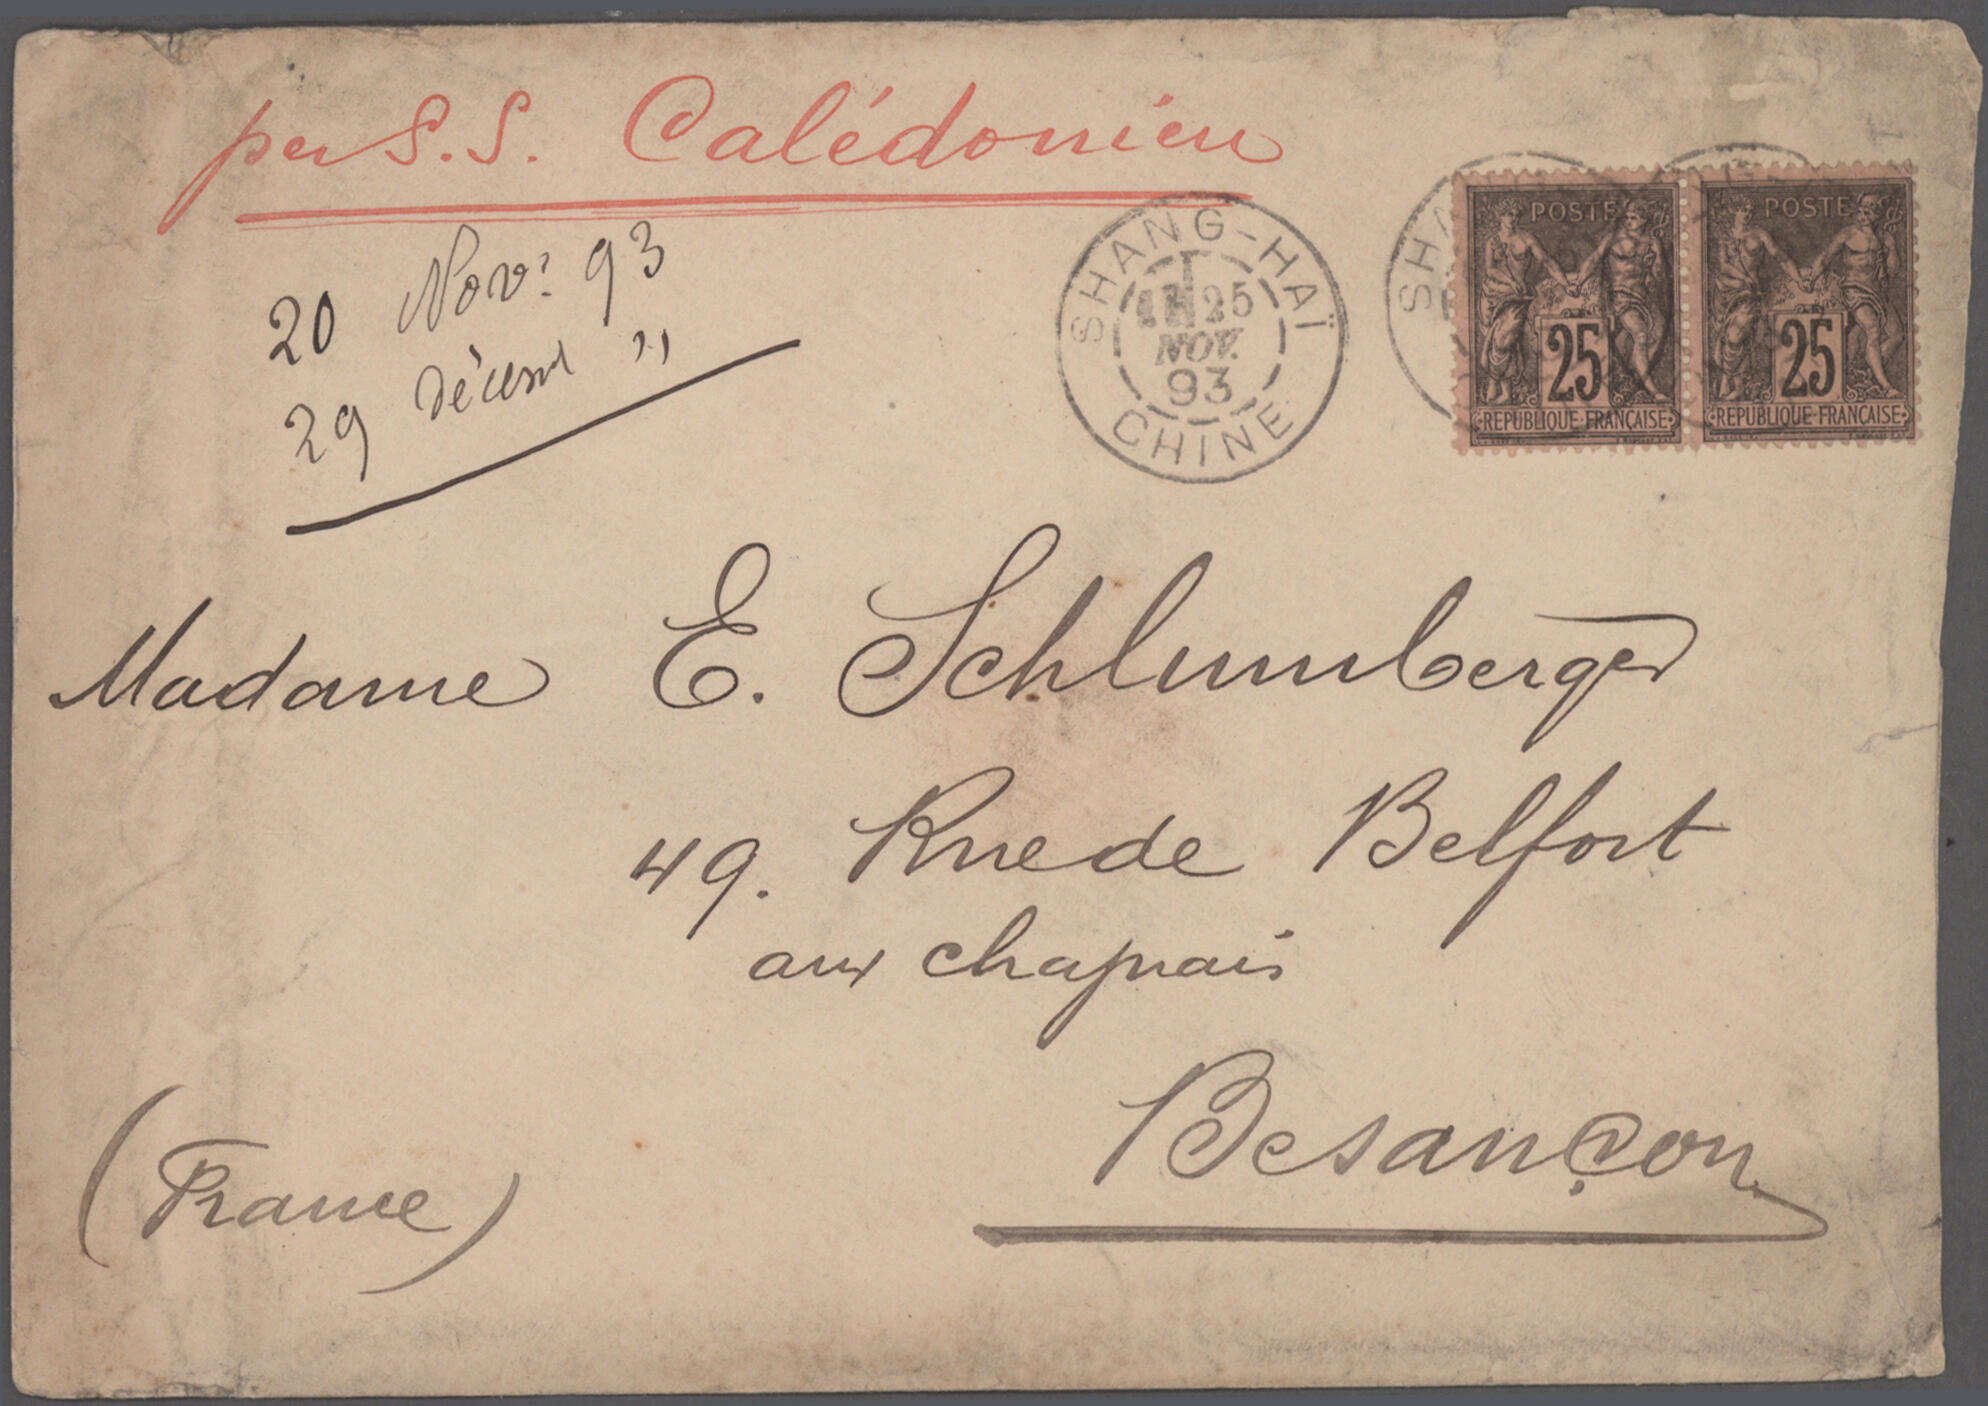 per S.S. Calédonien
20 Nov: 93
29 décemb "
SHANG-HAÏ
25
NOV.
93
CHINE
SHA
POSTE
25
REPUBLIQUE FRANÇAISE
POSTE
25
REPUBLIQUE FRANÇAISE
Madame E. Schlumberger
49. Rue de Belfort
aux chaprais
Besançon
(France)